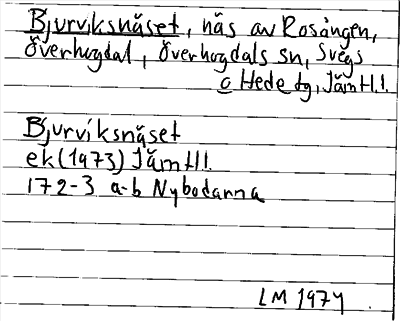 Bjurviksnäset, näs av Rosången,
Överhogdal, Överhogdals sn, Svegs
o Hede tg, Jämtl.
Bjurviksnäset
ek (1973) Jämtl.
172-3 a-b Nybodarna
LM 1974.